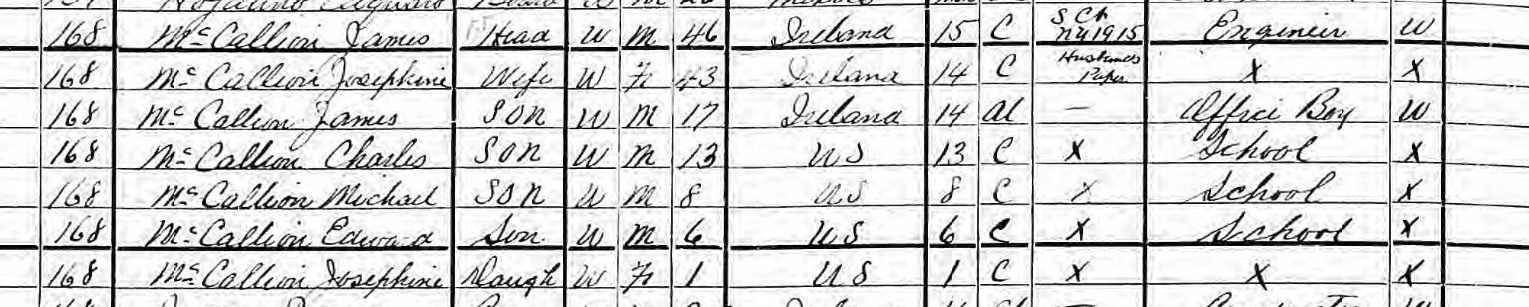 168 McCallion James Head W M 46 Ireland 15 C S Ct NY 1915 Engineer W
168 McCallion Josephine Wife W F 43 Ireland 14 C Husbands Paper X X
168 McCallion James Son W M 17 Ireland 14 al — Office Boy W
168 McCallion Charles Son W M 13 US 13 C X School X
168 McCallion Michael Son W M 8 US 8 C X School X
168 McCallion Edward Son W M 6 US 6 C X School X
168 McCallion Josephine Daugh W F 1 US 1 C X X X